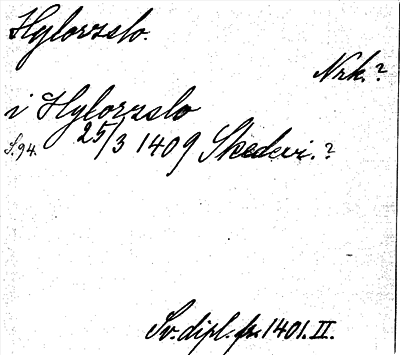 Hylorzslo.
Nrk.?
i Hylorzslo
S.94. 25/3 1409 Skedevi.?
Sv. dipl. fr. 1401. II.